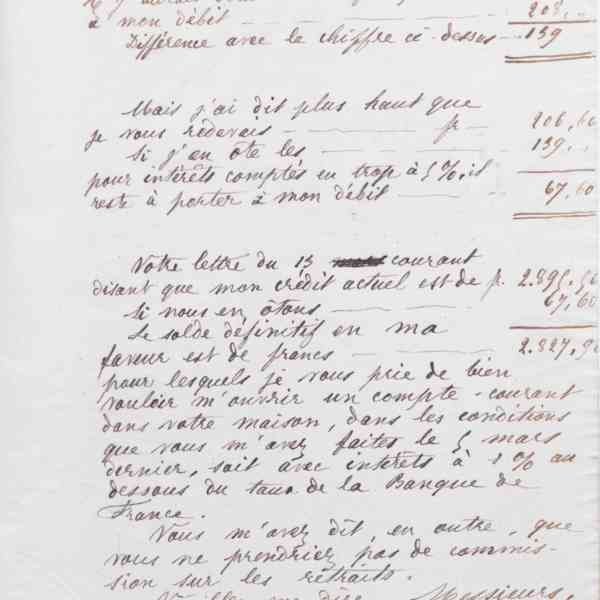 à mon débit 208, "
Différence avec le chiffre ci-dessus 139
Mais j'ai dit plus haut que
je vous redevais fr 206,60
Si j'en ôte les 139. "
pour intérêts comptés en trop à 5 %, il
reste à porter à mon débit 67,60
Votre lettre du 13 courant
disant que mon crédit actuel est de fr. 2.895,56
Si nous en ôtons 67,60
Le solde définitif en ma
faveur est de francs 2.827,96
pour lesquels je vous prie de bien
vouloir m'ouvrir un compte-courant
dans votre maison, dans les conditions
que vous m'avez faites le 5 mars
dernier, soit avec intérêts à 1 % au
dessous du taux de la Banque de
France.
Vous m'avez dit, en outre, que
vous ne prendriez pas de commis-
sion sur les retraits.
Messieurs,